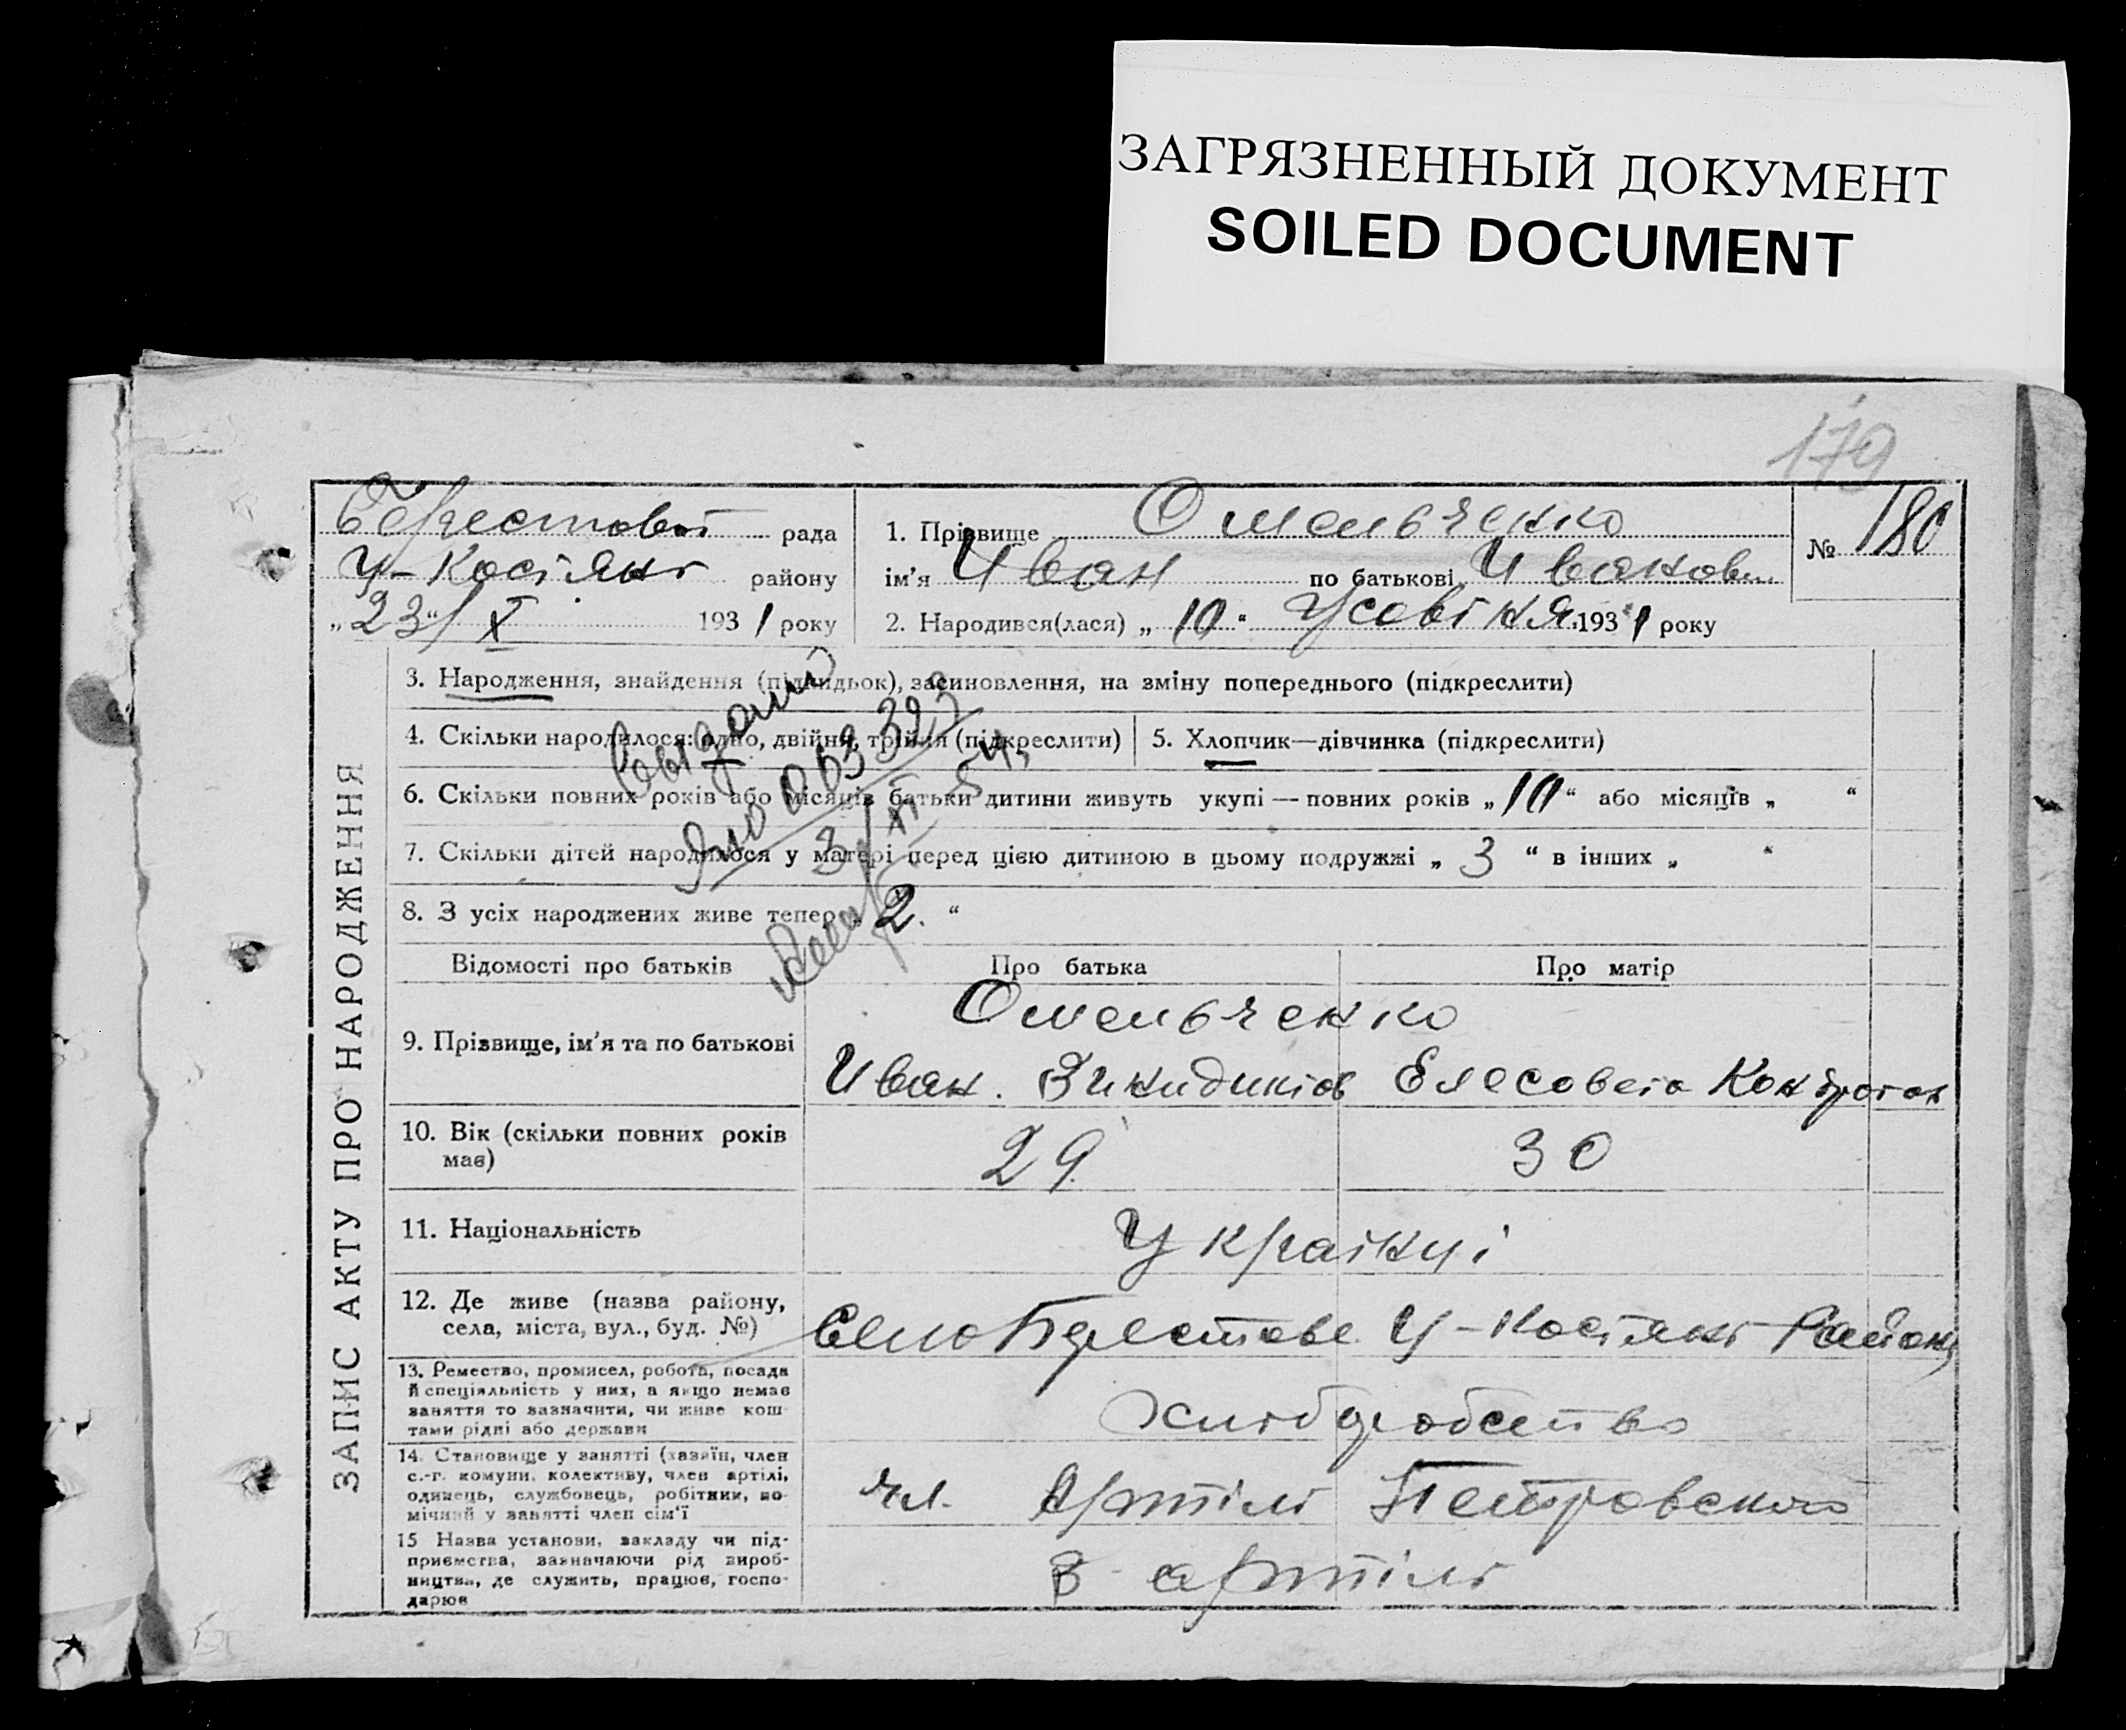 ЗАГРЯЗНЕННЫЙ ДОКУМЕНТ
SOILED DOCUMENT
179
рада
У-Костянт району
„23“/X 1931 року
1. Прізвище Омельченко
ім’я Иван по батькові Иванов
2. Народився(лася) „10“ 1931 року
№ 180
ЗАПИС АКТУ ПРО НАРОДЖЕННЯ
3. Народження, знайдення (підкидьок), засиновлення, на зміну попереднього (підкреслити)
4. Скільки народилося: одно, двійня, трійня (підкреслити)
5. Хлопчик—дівчинка (підкреслити)
6. Скільки повних років або місяців батьки дитини живуть укупі — повних років „10“ або місяців „ “
7. Скільки дітей народилося у матері перед цією дитиною в цьому подружжі „3“ в інших „ “
8. З усіх народжених живе тепер „2.“
063323
Відомості про батьків
Про батька
Про матір
9. Прізвище, ім’я та по батькові
Омельченко
Иван.
Елесовета Кондратов
10. Вік (скільки повних років має)
29
30
11. Національність
Українці
12. Де живе (назва району,
села, міста, вул., буд. №)
Село Берестове У-Костянт Району
13. Ремество, промисел, робота, посада
й спеціяльність у них, а якщо немає
заняття то зазначити, чи живе кош-
тами рідні або держави
Хлібробство
14. Становище у занятті (хазяїн, член
с.-г. комуни, колективу, член артілі,
одинець, службовець, робітник, по-
мічний у занятті член сім’ї
чл. Артілі Петровского
15 Назва установи, закладу чи під-
приємства, зазначаючи рід вироб-
ництва, де служить, працює, госпо-
дарює
В артілі